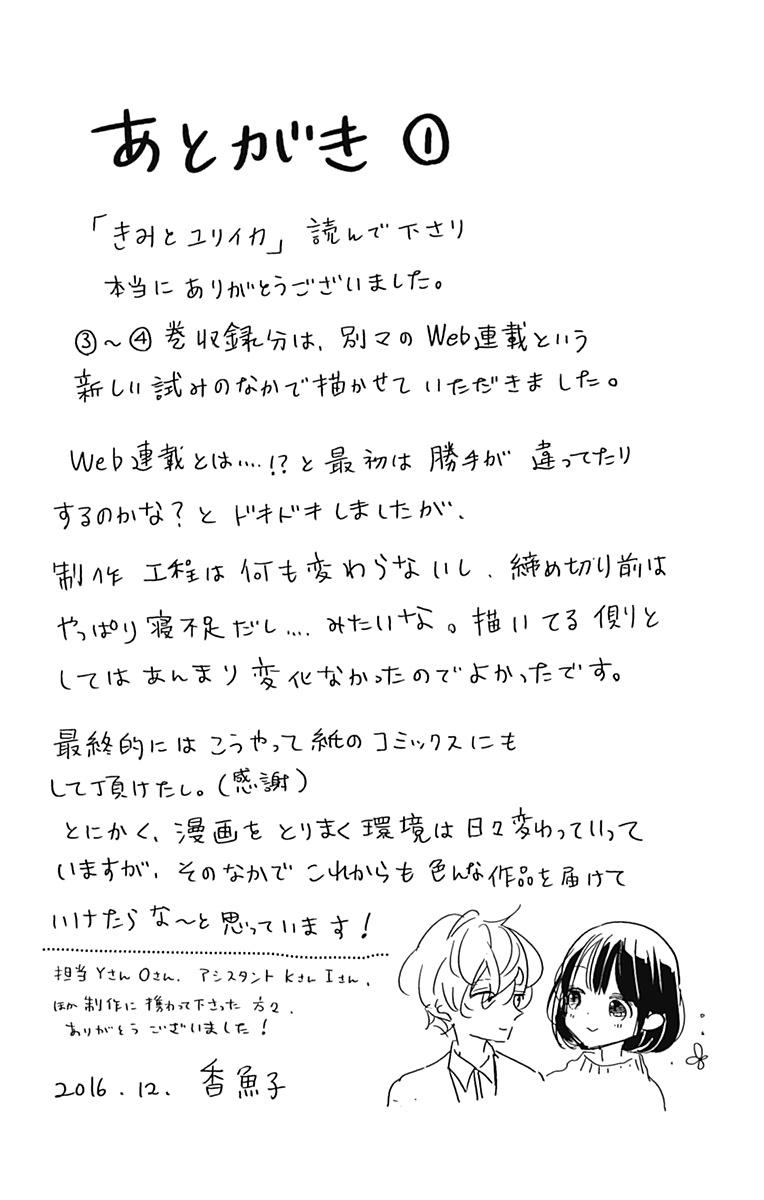 あとがき①
「きみとユリイカ」読んで下さり
本当にありがとうございました。
③～④巻収録分は、別マのWeb連載という
新しい試みのなかで描かせていただきました。
Web連載とは…!?と最初は勝手が違ってたり
するのかな？とドキドキしましたが、
制作工程は何も変わらないし、締め切り前は
やっぱり寝不足だし…みたいな。描いてる側と
してはあんまり変化なかったのでよかったです。
最終的にはこうやって紙のコミックスにも
して頂けたし。(感謝)
とにかく、漫画をとりまく環境は日々変わっていって
いますが、そのなかでこれからも色んな作品を届けて
いけたらな～と思っています！
担当YさんOさん、アシスタントKさんIさん、
ほか制作に携わって下さった方々、
ありがとうございました！
2016.12. 香魚子